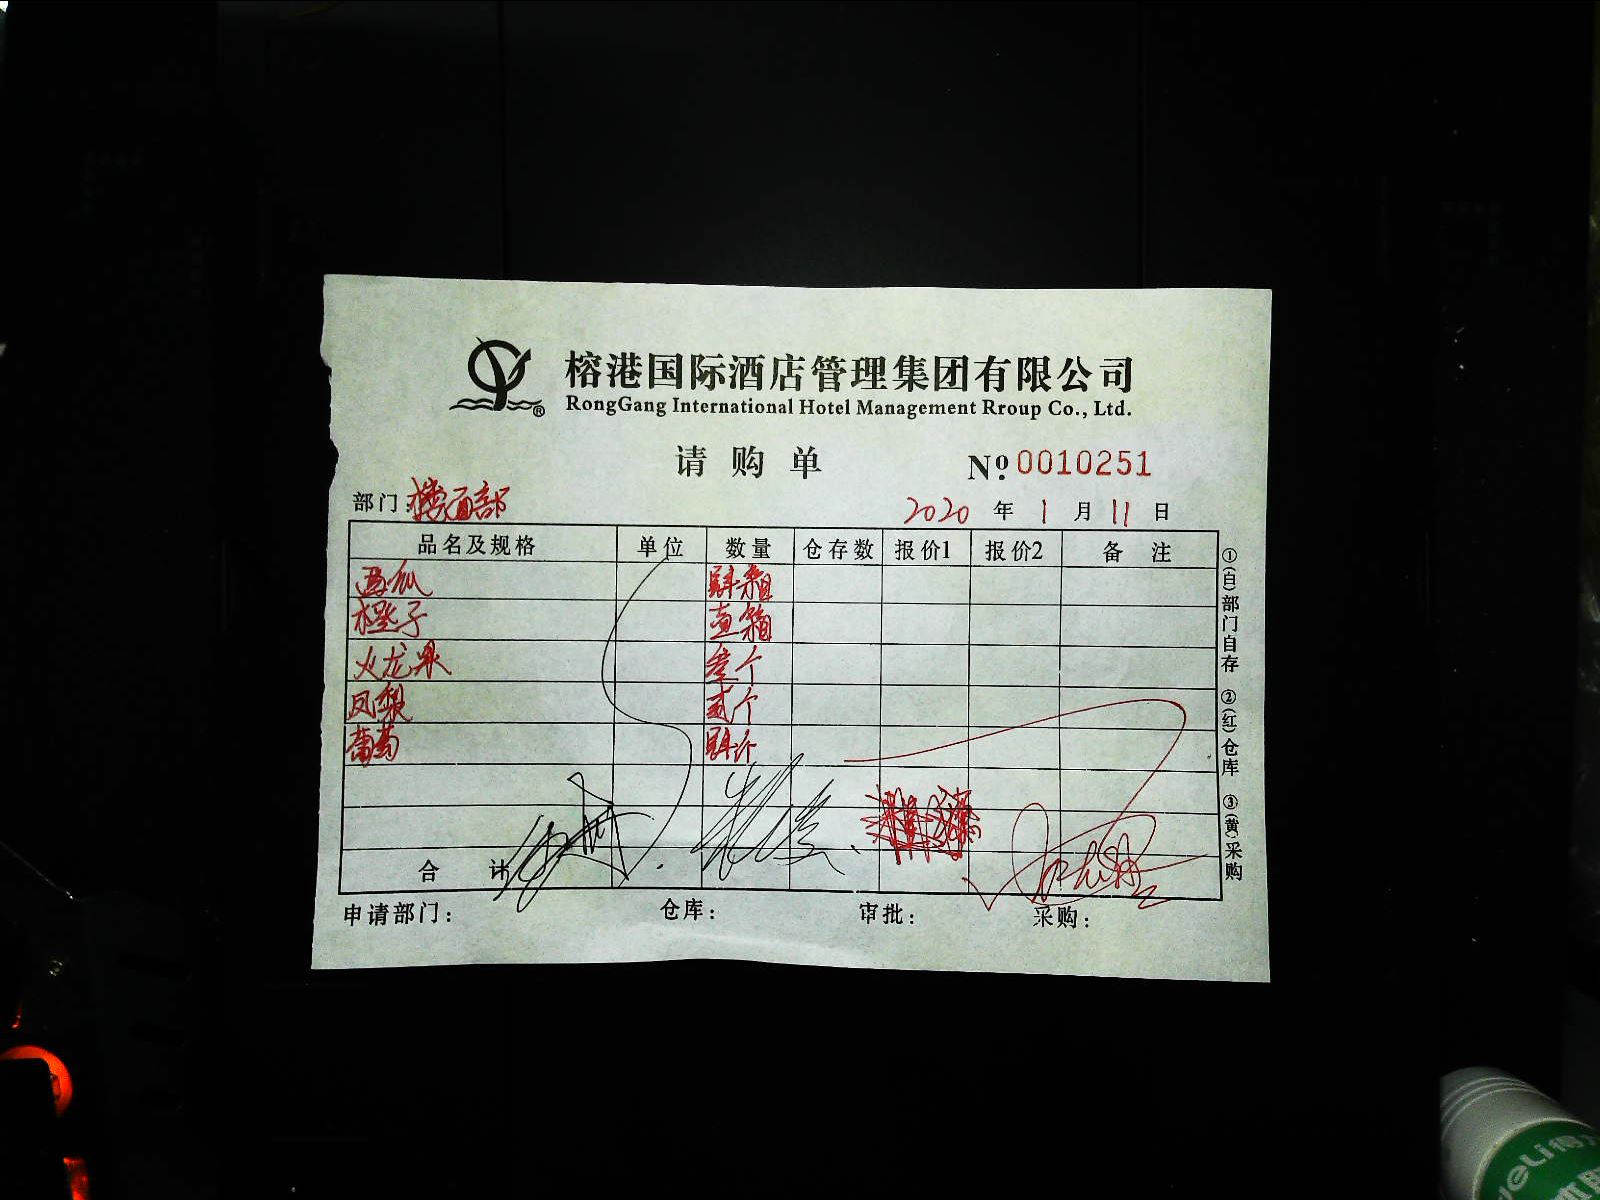 榕港国际酒店管理集团有限公司
RongGang International Hotel Management Rroup Co., Ltd.
®
请购单
№ 0010251
部门: 楼面部 2020 年 1 月 11 日
品名及规格 单位 数量 仓存数 报价1 报价2 备注
西瓜 肆箱
橙子 壹箱
火龙果 个
凤梨 贰个
葡萄 肆斤
合计
申请部门: 仓库: 审批: 采购:
①(白)部门自存 ②(红)仓库 ③(黄)采购
deli